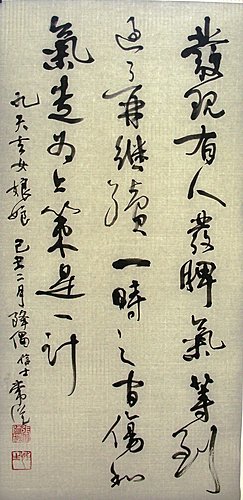 發現有人發脾氣等到
過了再繼續一時之官傷和
氣走為上策是一計
孔天玄女娘娘
己丑二月降偈信士